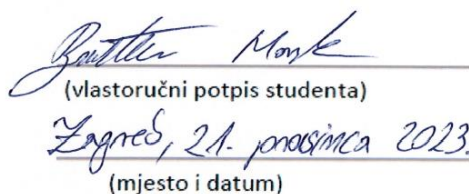 (vlastoručni potpis studenta)
Zagreb, 21. prosinca 2023.
(mjesto i datum)